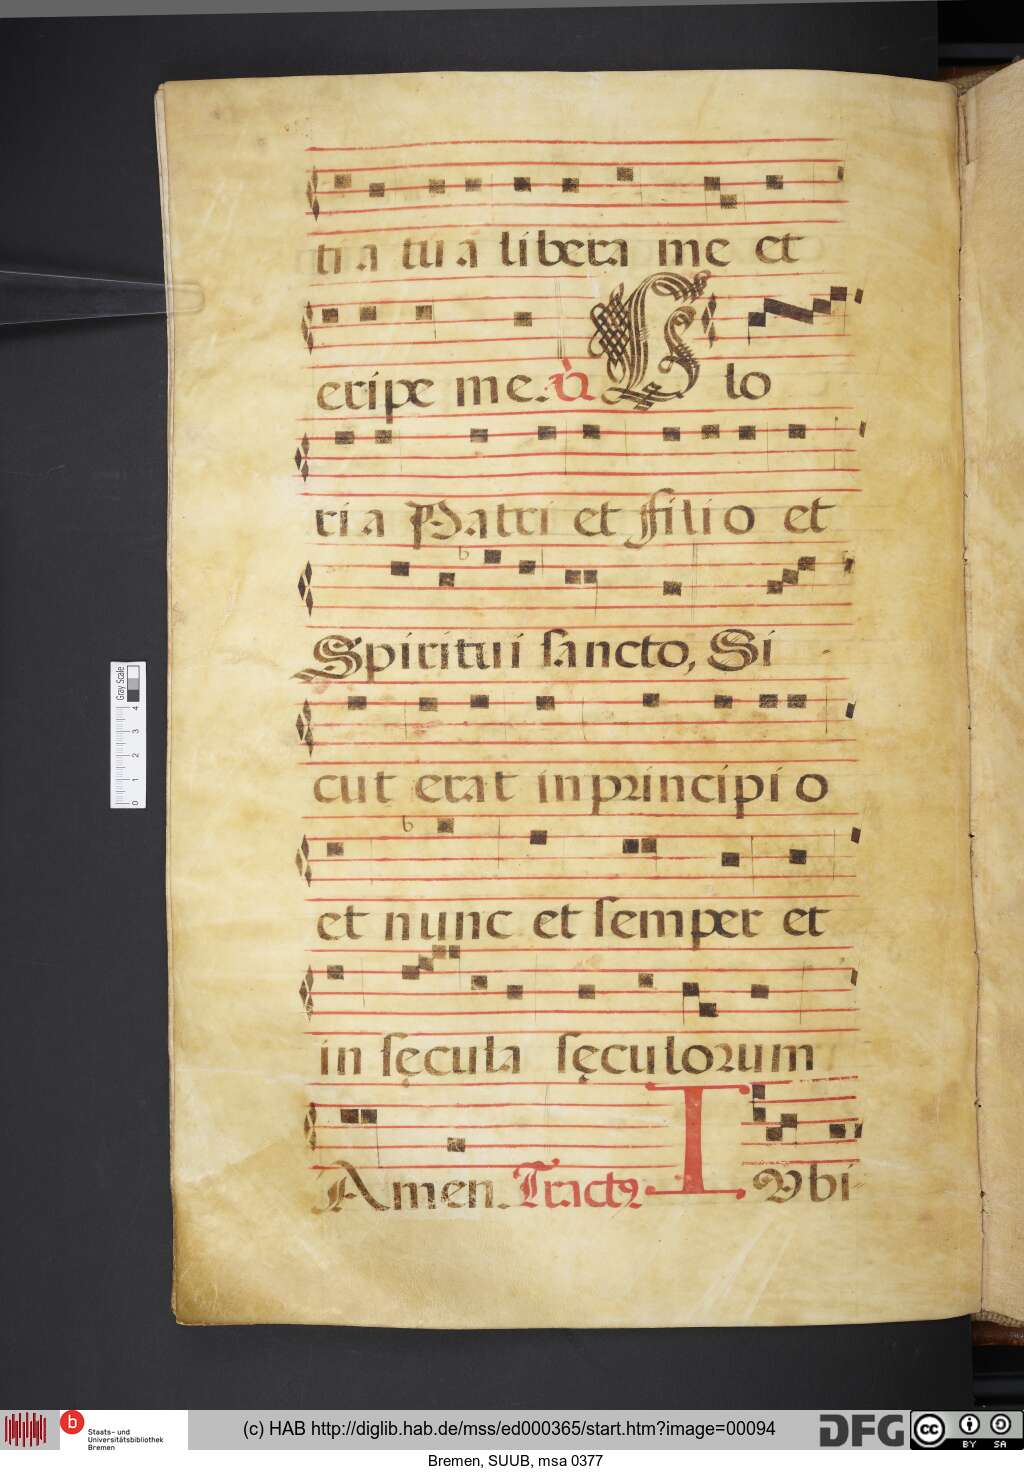 ti a tu a libera me et
eripe me. ℣. Glo
ri a Patri et filio et
Spiritui sancto, Si
cut erat in principi o
et nunc et semper et
in sęcula sęculorum
Amen. Tractꝰ IVbi
Gray Scale
4
3
2
1
0
b Staats- und
Universitätsbibliothek
Bremen
(c) HAB http://diglib.hab.de/mss/ed000365/start.htm?image=00094
DFG
cc BY SA
Bremen, SUUB, msa 0377